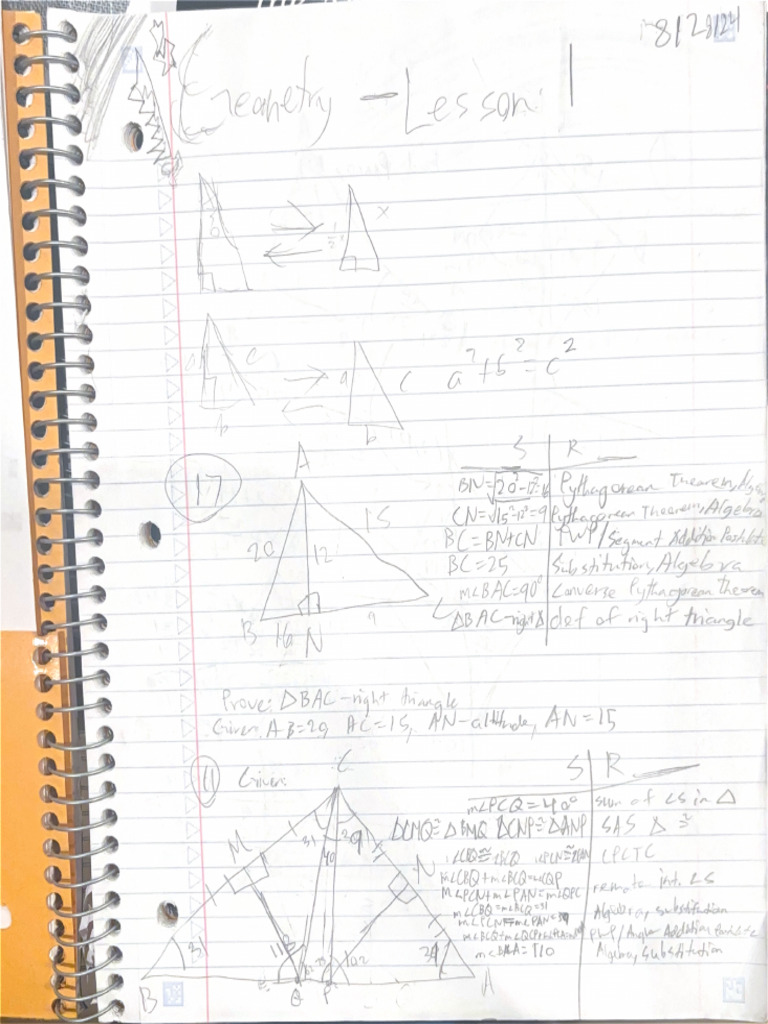 8/28/24
Geometry - Lesson 1
x
a c
b
a c
b
a² + b² = c²
17
A
20
12
15
B 16 N 9 C
S R
BN=√20²-12²=16 Pythagorean Theorem, Algebra
CN=√15²-12²=9 Pythagorean Theorem, Algebra
BC=BN+CN PWP/Segment Addition Postulate
BC=25 Substitution, Algebra
m∠BAC=90° Converse Pythagorean theorem
△BAC-right△ def of right triangle
Prove: △BAC-right triangle
Given: AB=20, AC=15, AN-altitude, AN=15
11 Given:
C
31 40 29
M
N
31
118
102
29
B Q P A
S R
m∠PCQ=40° sum of ∠s in △
△CMQ≅△BMQ △CNP≅△ANP SAS △ ≅
CPCTC
m∠CBQ+m∠BCQ=m∠CQP
m∠PCN+m∠PAN=m∠QPC remote int. ∠s
m∠CBQ=m∠BCQ=31 Algebra, substitution
PWP/Angle Addition Postulate
=110 Algebra, Substitution